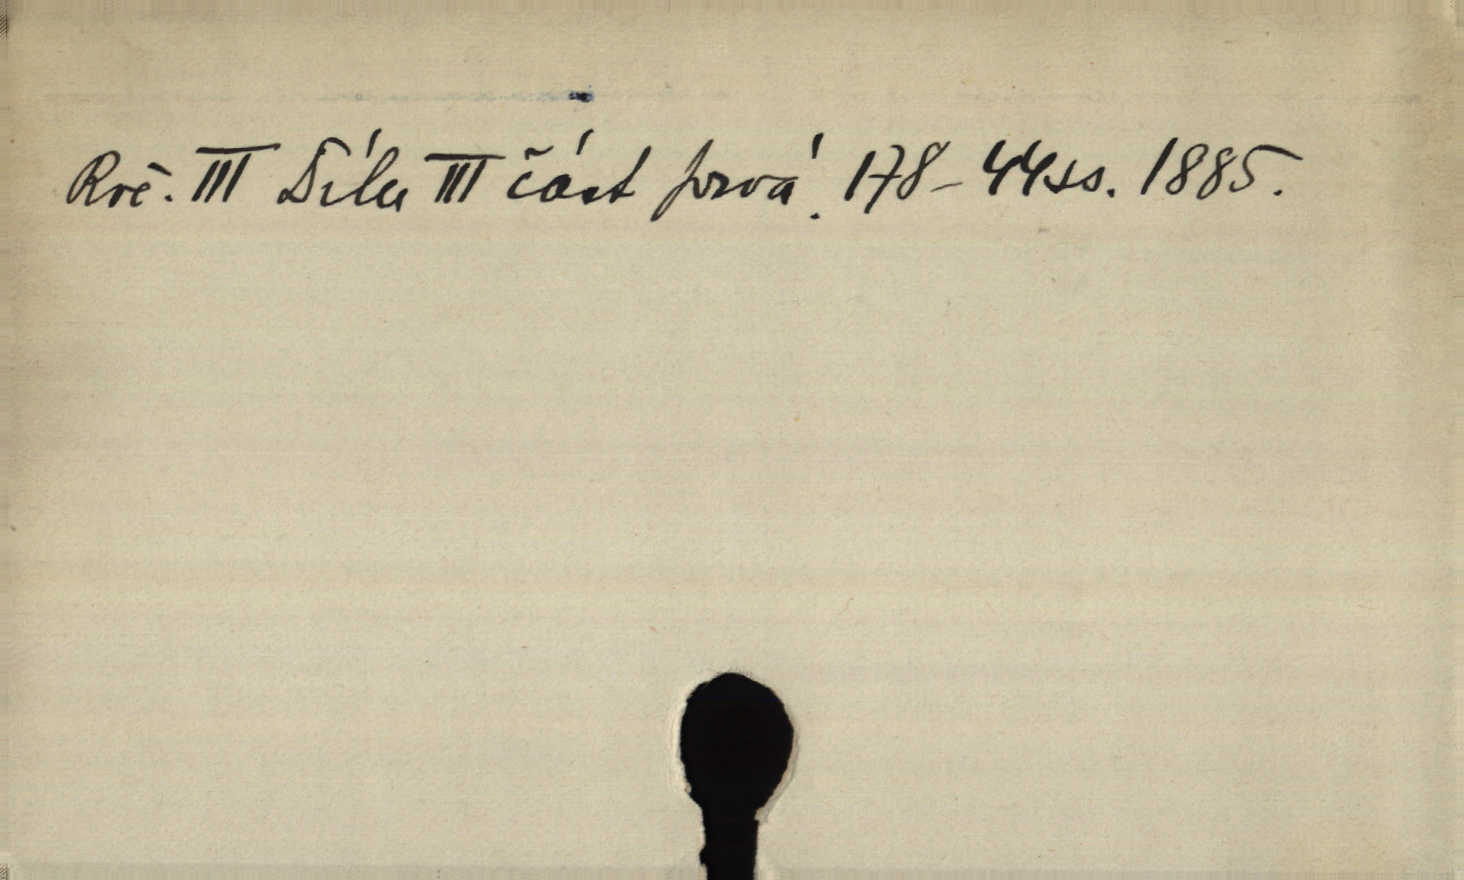 Roč. III Dílu III část prvá. 178-44ss. 1885.